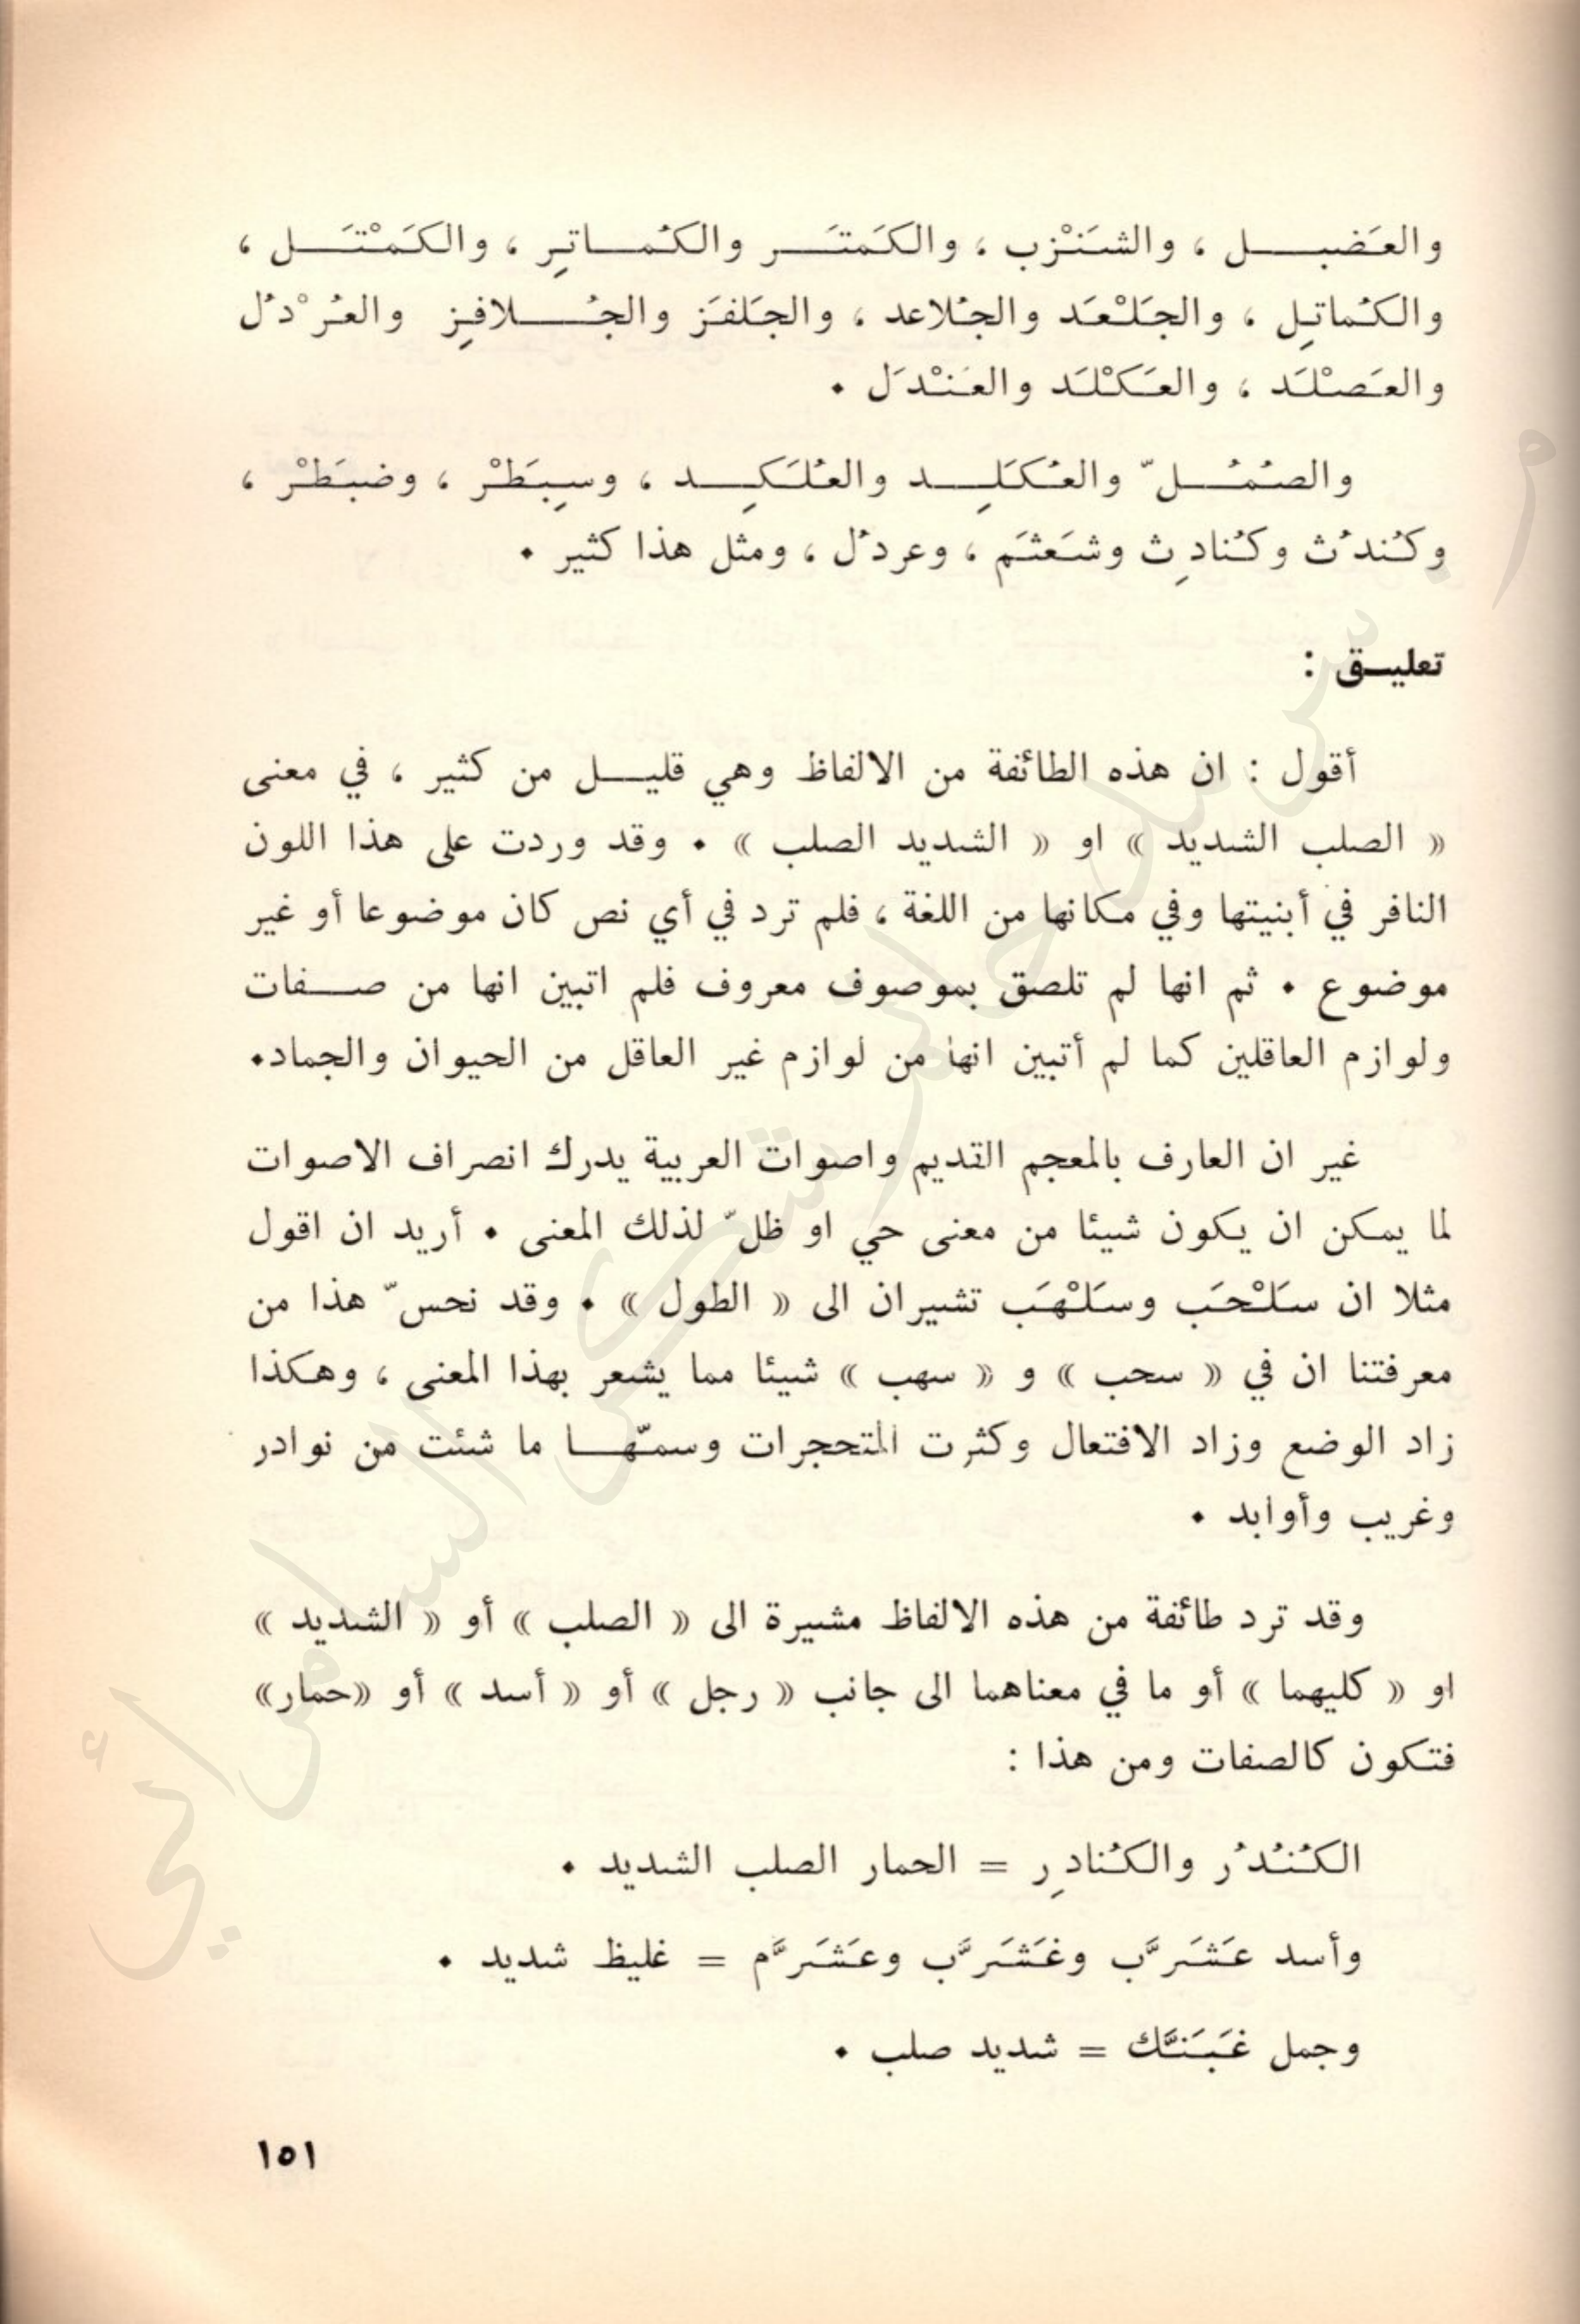 والعَضبل ، والشَنْزب ، والكَمتَر والكُماتِر ، والكَمْتَل ،
والكُماتِل ، والجَلْعَد والجُلاعد ، والجَلفَز والجُلافِز والعُرْدُل
والعَصْلَد ، والعَكْلَد والعَنْدَل .
والصُمُلّ والعُكَلِد والعُلَكِد ، وسِبَطْر ، وضبَطْر ،
وكُندُث وكُنادِث وشَعثَم ، وعردُل ، ومثل هذا كثير .
تعليق :
أقول : ان هذه الطائفة من الالفاظ وهي قليل من كثير ، في معنى
« الصلب الشديد » او « الشديد الصلب » . وقد وردت على هذا اللون
النافر في أبنيتها وفي مكانها من اللغة ، فلم ترد في أي نص كان موضوعا أو غير
موضوع . ثم انها لم تلصق بموصوف معروف فلم اتبين انها من صفات
ولوازم العاقلين كما لم أتبين انها من لوازم غير العاقل من الحيوان والجماد.
غير ان العارف بالمعجم القديم واصوات العربية يدرك انصراف الاصوات
لما يمكن ان يكون شيئا من معنى حي او ظلّ لذلك المعنى . أريد ان اقول
مثلا ان سَلْحَب وسَلْهَب تشيران الى « الطول » . وقد نحسّ هذا من
معرفتنا ان في « سحب » و « سهب » شيئا مما يشعر بهذا المعنى ، وهكذا
زاد الوضع وزاد الافتعال وكثرت المتحجرات وسمّها ما شئت من نوادر
وغريب وأوابد .
وقد ترد طائفة من هذه الالفاظ مشيرة الى « الصلب » أو « الشديد »
او « كليهما » أو ما في معناهما الى جانب « رجل » أو « أسد » أو «حمار»
فتكون كالصفات ومن هذا :
الكُنُدُر والكُنادِر = الحمار الصلب الشديد .
وأسد عَشَرَّب وغَشَرَّب وعَشَرَّم = غليظ شديد .
وجمل غَبَنَّك = شديد صلب .
١٥١